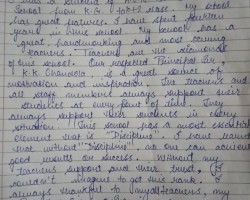 school from K.G. to +2 class. My school
has great features. I have spent fourteen
years in this school. My school has a
great, hardworking and most
teachers. Teachers are the diamonds
of this school. Our respected Principal Sir,
K.K. Chandola, is a great source of
motivation and inspiration. The Teachers and
all staff members always support their
students at every point of time. They
always support their students in every
situation. This school has a most essential
element that is "Discipline". I have learnt
that without "Discipline", no one can achieve
good results or success. Without my
teachers support and their trust, I
couldn't to get this rank. I
always thankful to my all teachers, my